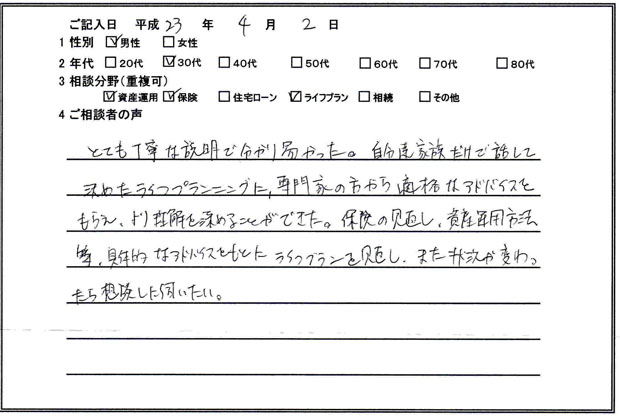 ご記入日 平成 23 年 4 月 2 日
1 性別 ☑男性 □女性
2 年代 □20代 ☑30代 □40代 □50代 □60代 □70代 □80代
3 相談分野(重複可)
☑資産運用 ☑保険 □住宅ローン ☑ライフプラン □相続 □その他
4 ご相談者の声
とても丁寧な説明で分かり易かった。自分達家族だけで話して
決めたライフプランニングに、専門家の方から適格なアドバイスを
もらえ、より理解を深めることができた。保険の見直し、資産運用方法
等、具体的なアドバイスをもとにライフプランを見直し、また状況が変わっ
たら相談しに伺いたい。